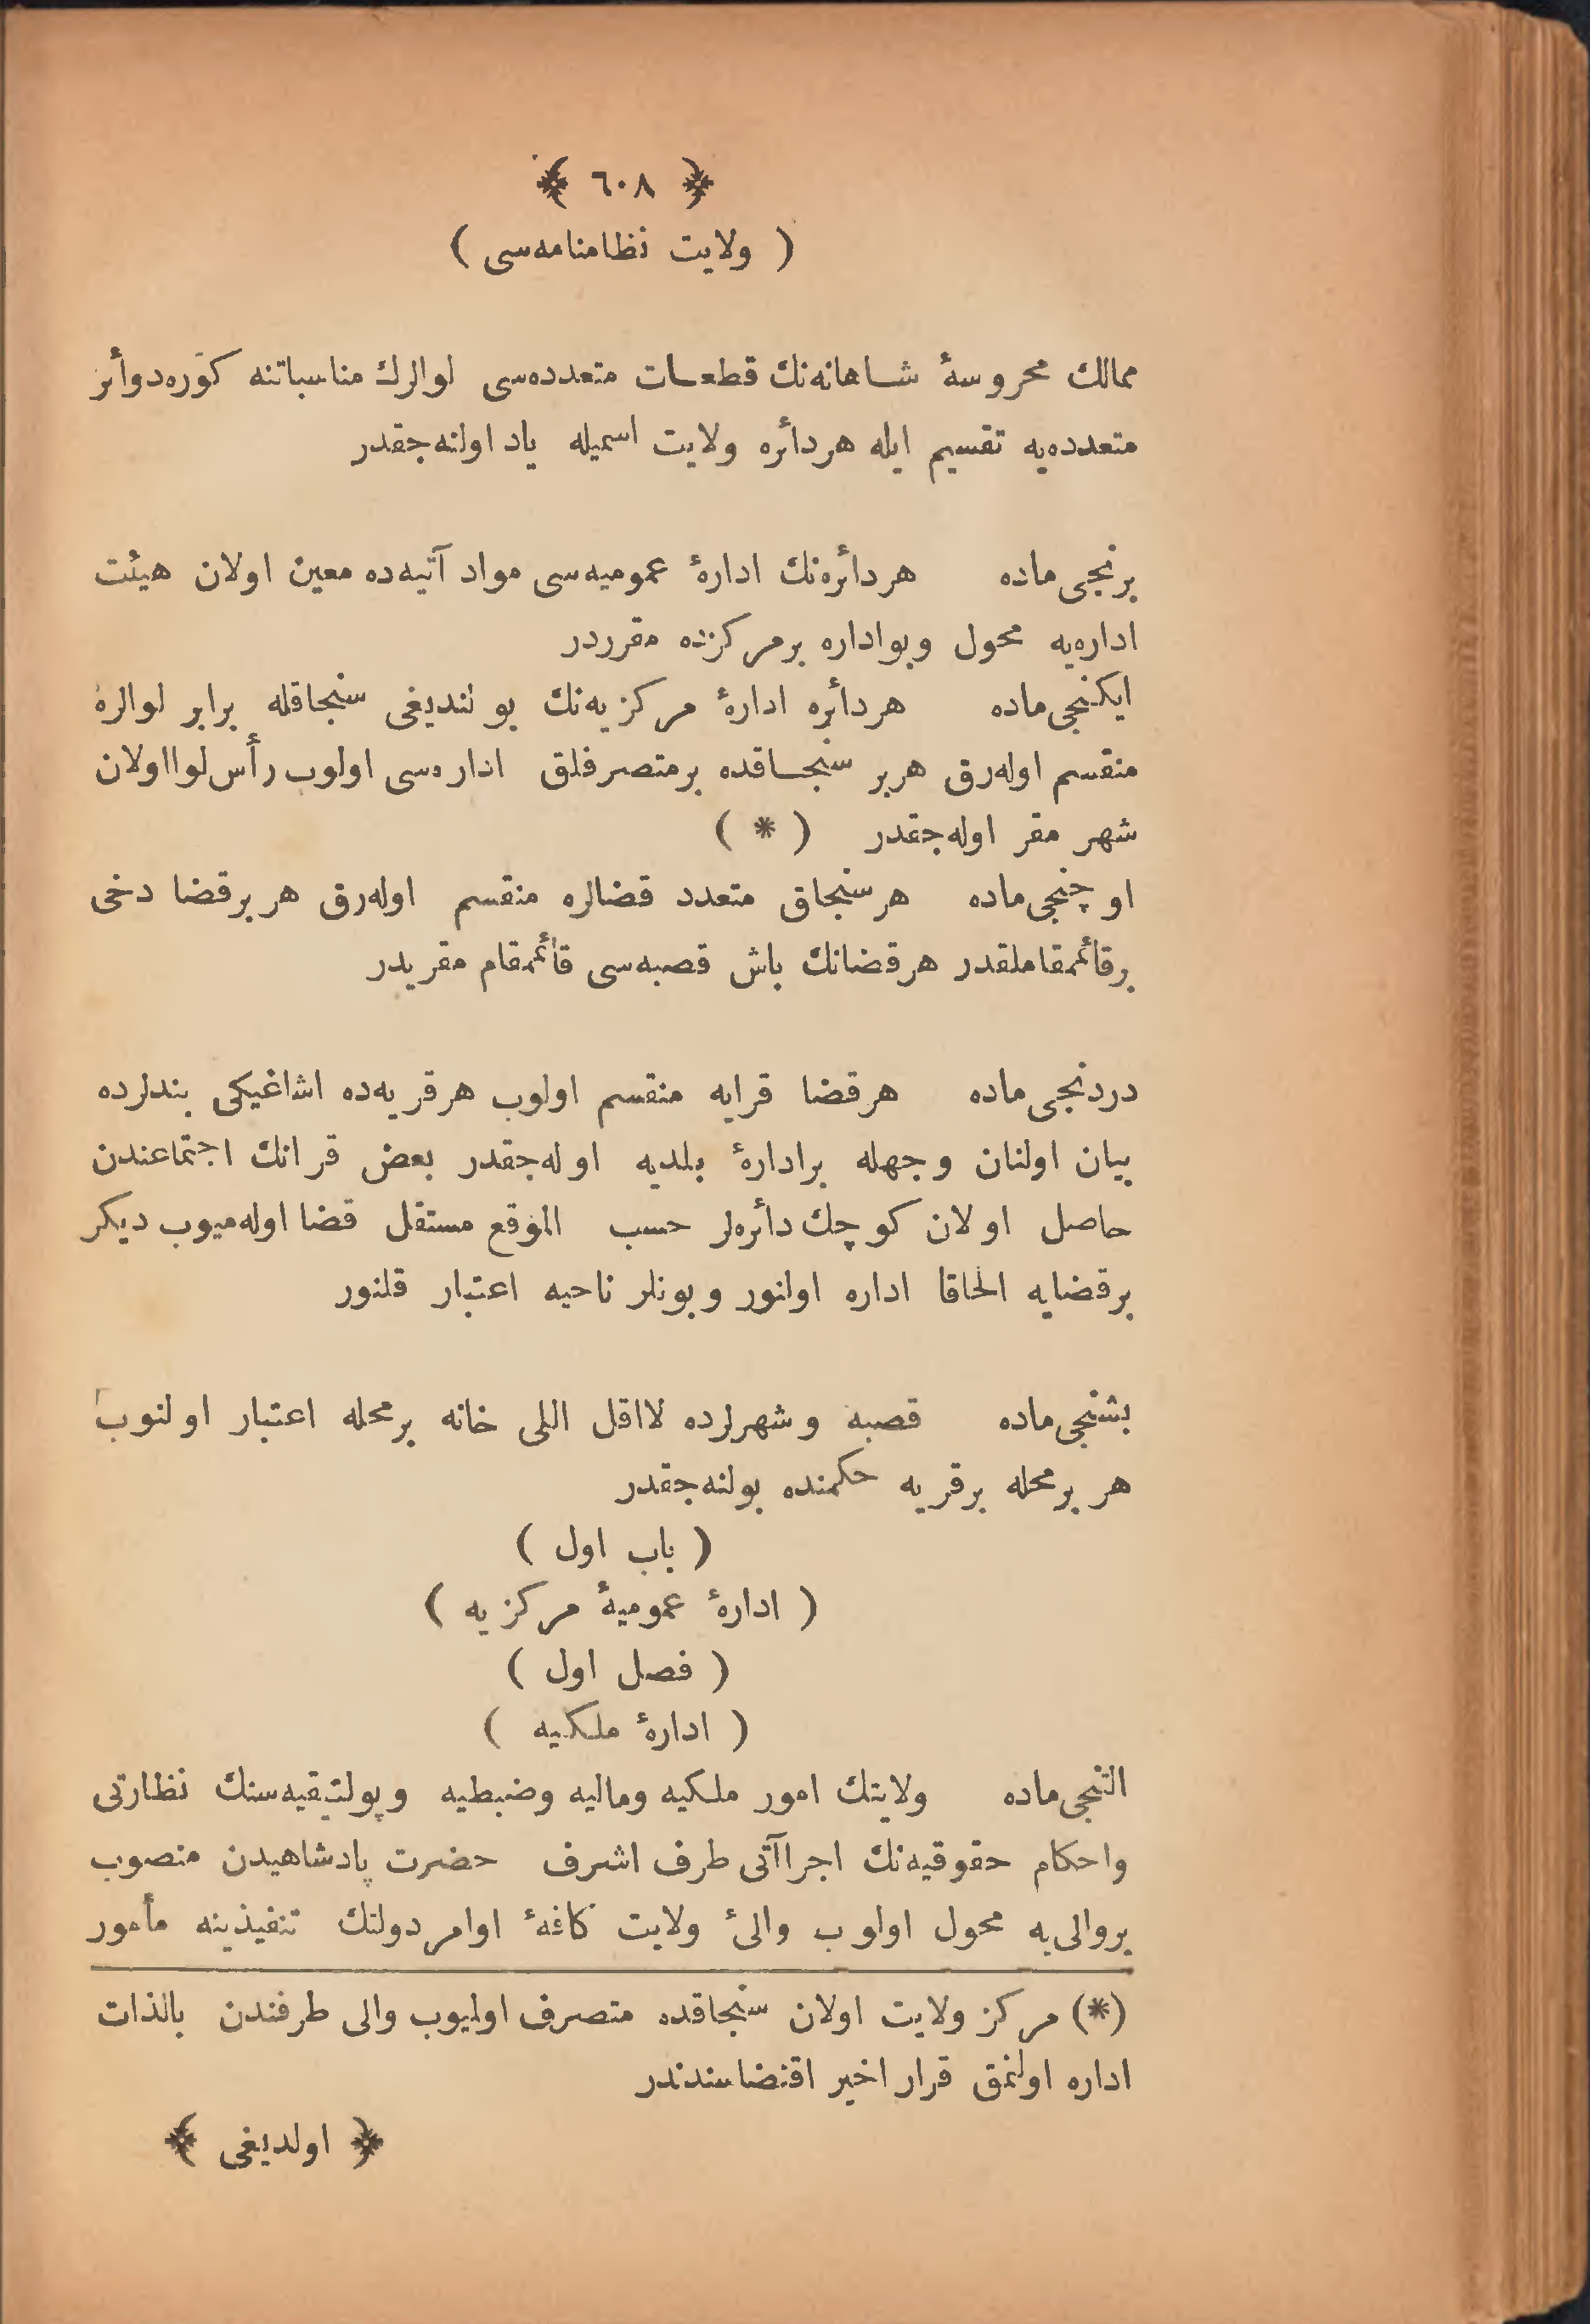 ﴿ ٦٠٨ ﴾
( ولايت نظامنامه‌سی )
ممالك محروسۀ شاهانه‌نك قطعات متعدده‌سی لوالرك مناسباتنه كوره دوائر
متعدده‌يه تقسيم ايله هر دائره ولايت اسميله ياد اولنه‌جقدر
برنجی ماده هر دائره‌نك ادارۀ عموميه‌سی مواد آتيه‌ده معين اولان هيئت
اداره‌يه محول و بو اداره بر مركزده مقرردر
ايكنجی ماده هر دائره ادارۀ مركزيه‌نك بولنديغی سنجاقله برابر لوالره
منقسم اوله‌رق هر بر سنجاقده بر متصرفلق اداره‌سی اولوب رأس لوا اولان
شهر مقر اوله‌جقدر ( * )
اوچنجی ماده هر سنجاق متعدد قضالره منقسم اوله‌رق هر بر قضا دخی
بر قائممقاملقدر هر قضانك باش قصبه‌سی قائممقام مقريدر
دردنجی ماده هر قضا قرايه منقسم اولوب هر قريه‌ده اشاغيكی بندلرده
بيان اولنان وجهله بر ادارۀ بلديه اوله‌جقدر بعض قرانك اجتماعندن
حاصل اولان كوچك دائره‌لر حسب الموقع مستقل قضا اوله‌ميوب ديكر
بر قضايه الحاقا اداره اولنور و بونلر ناحيه اعتبار قلنور
بشنجی ماده قصبه و شهرلرده لااقل اللی خانه بر محله اعتبار اولنوب
هر بر محله بر قريه حكمنده بولنه‌جقدر
( باب اول )
( ادارۀ عموميۀ مركزيه )
( فصل اول )
( ادارۀ ملكيه )
التنجی ماده ولايتك امور ملكيه وماليه وضبطيه و پولتيقيه‌سنك نظارتی
واحكام حقوقيه‌نك اجراآتی طرف اشرف حضرت پادشاهيدن منصوب
بر والی‌يه محول اولوب والیٔ ولايت كافۀ اوامر دولتك تنفيذينه مأمور
(*) مركز ولايت اولان سنجاقده متصرف اوليوب والی طرفندن بالذات
اداره اولنمق قرار اخير اقتضاسندندر
﴿ اولديغی ﴾